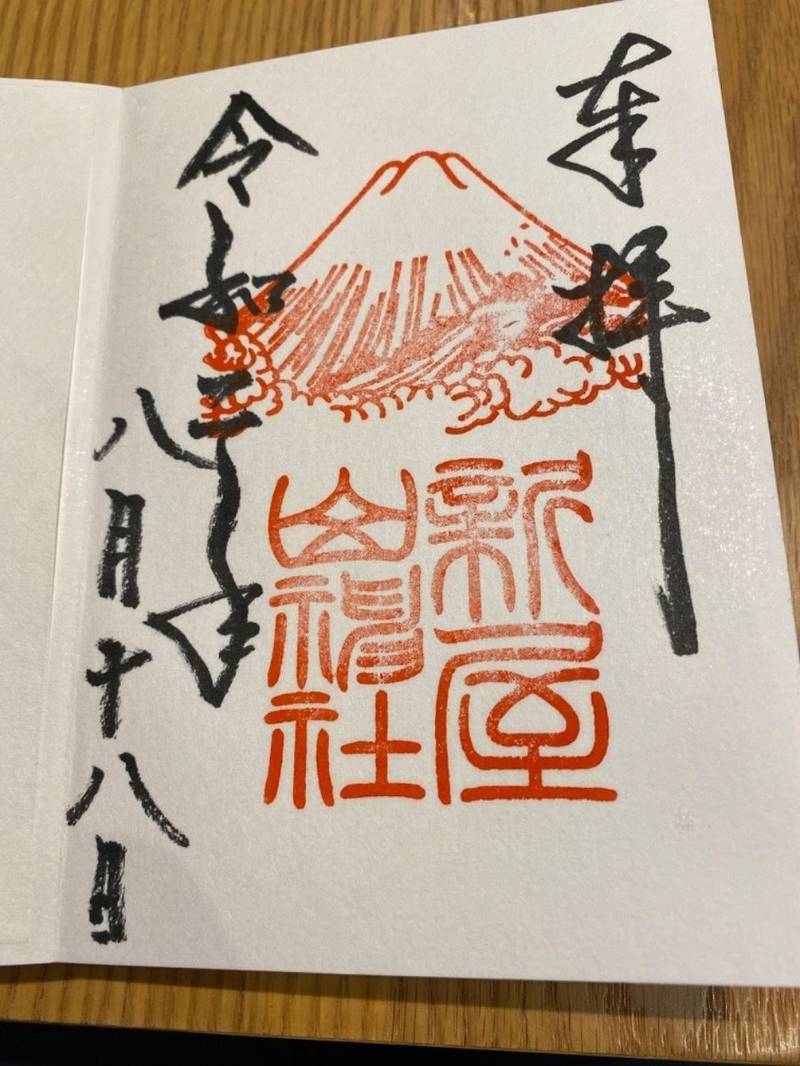 奉拝
新屋
山神社
令和三年
八月十八日